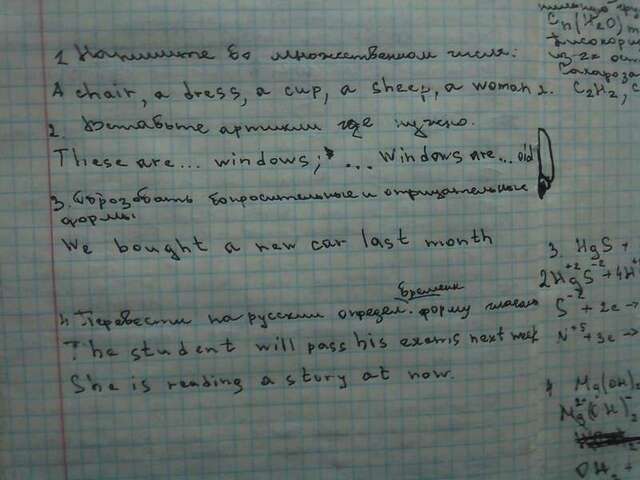 1 Напишите во множественном числе:
A chair, a dress, a cup, a sheep, a woman.
2. Вставьте артикли где нужно.
These are... windows; ... windows are... old
3. Образовать вопросительные и отрицательные формы
We bought a new car last month
4. Перевести на русский определ. времени форму глагола
The student will pass his exams next week
She is reading a story at now.
Cn(H2O)m
Сахароза
C2H2, C
3. HgS +
2Hg+2S-2 + 4H+
S-2 + 2e →
N+5 + 3e →
4 Mg(OH)2
OH2 +